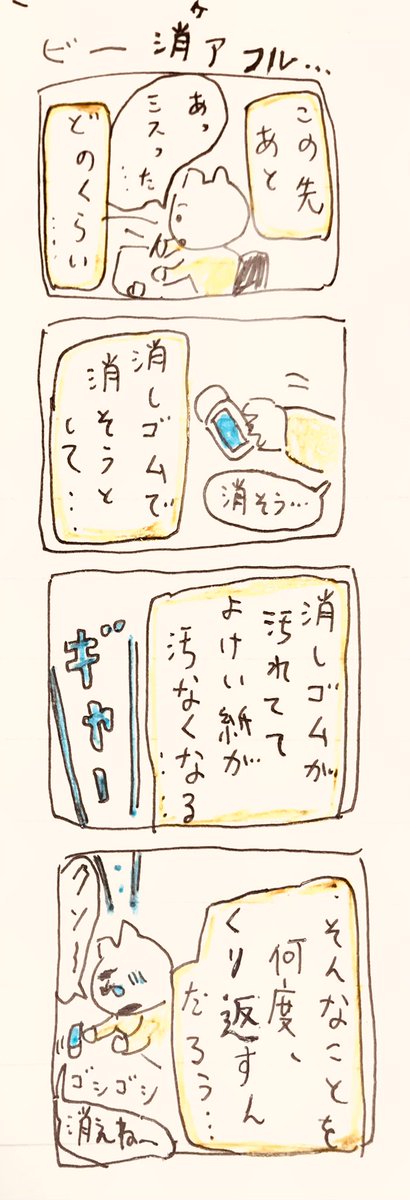 ケ
ビー消アフル…
この先
あと
あっ
ミスった…
どのくらい…
消そう…
消しゴムで
消そうと
して…
消しゴムが
汚れてて
よけい紙が
汚なくなる…
ギャー
…そんなことを
何度、
くり返すん
だろう…
クソ〜
ゴシゴシ
消えね〜